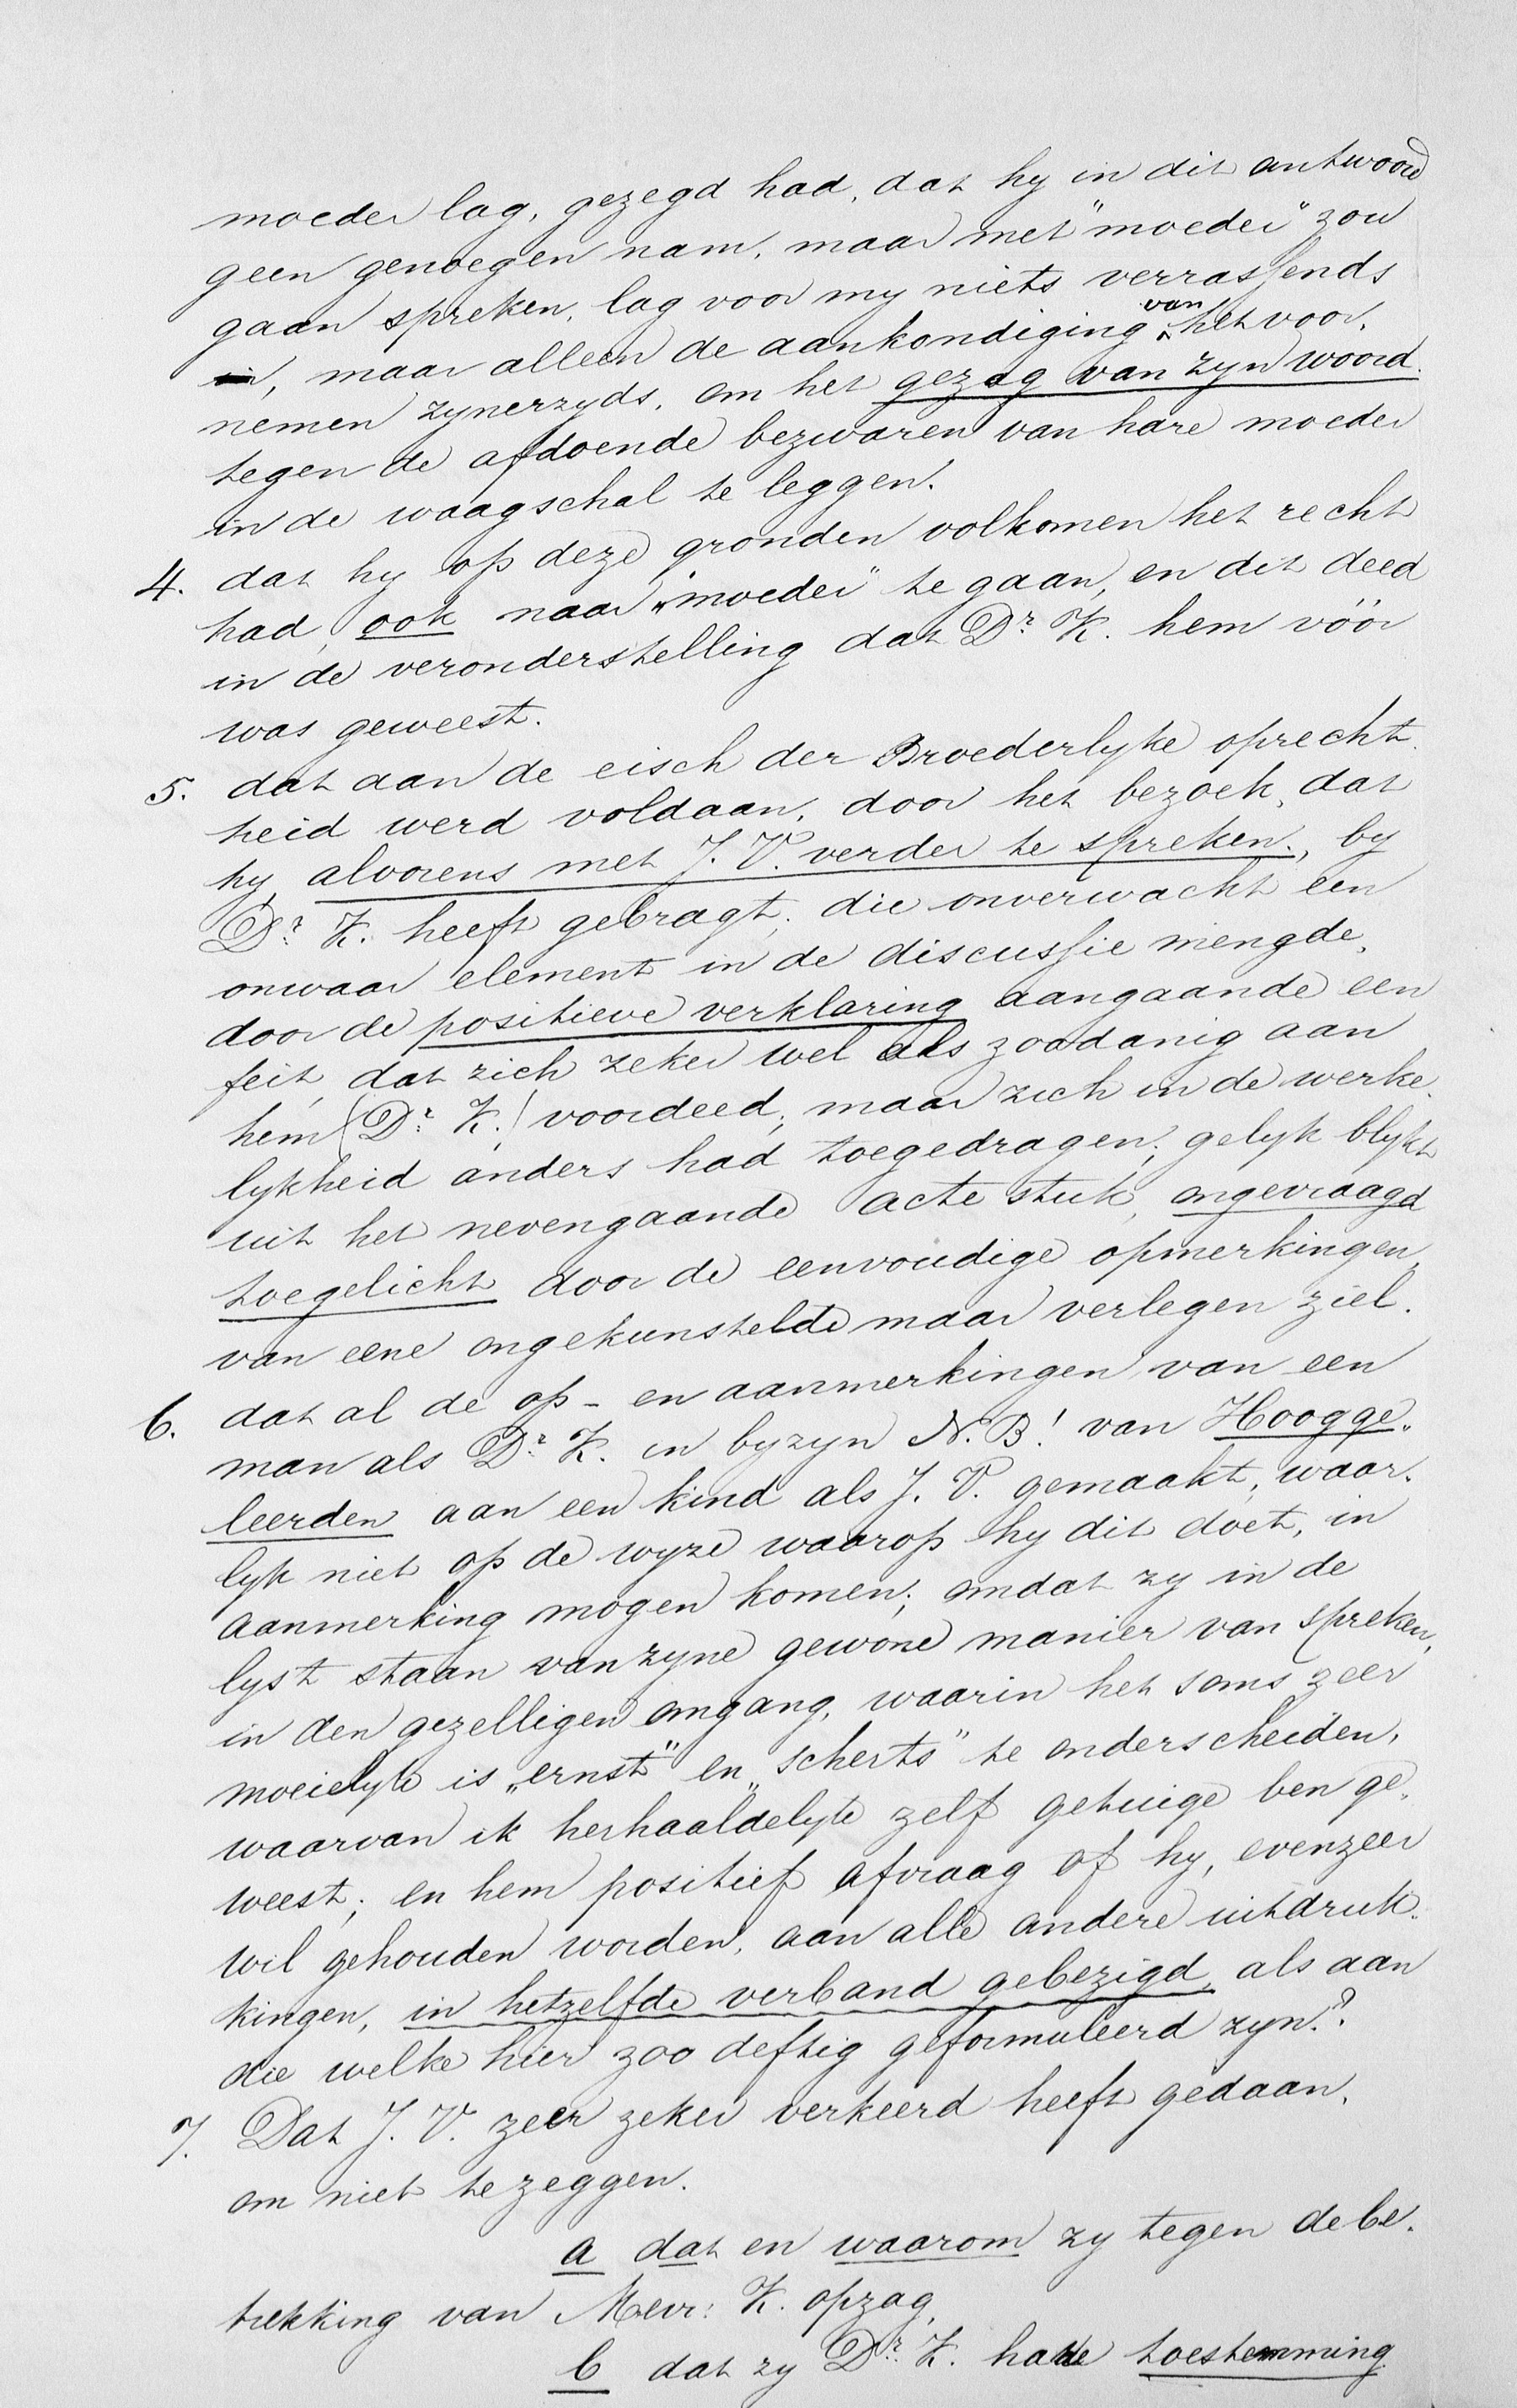 moeder lag, gezegd had, dat hy in dit antwoord
geen genoegen nam, maar met "moeder" zou
gaan spreken, lag voor my niets verrassends
in, maar alleen de aankondiging van het voor-
nemen zynerzyds, om het gezag van zyn woord
tegen de afdoende bezwaren van hare moeder
in de waagschal te leggen.
4. dat hy op deze gronden volkomen het recht
had, ook naar "moeder" te gaan, en dit deed
in de veronderstelling dat Dr. K. hem vóór
was geweest.
5. dat aan de eisch der Broederlyke oprecht-
heid werd voldaan, door het bezoek, dat
hy, alvorens met J. V. verder te spreken, by
Dr. K. heeft gebragt; die onverwacht een
onwaar element in de discussie mengde,
door de positieve verklaring aangaande een
feit, dat zich zeker wel als zoodanig aan
hem (Dr. K.) voordeed, maar zich in de werke-
lykheid anders had toegedragen; gelyk blykt
uit het nevengaande acte stuk, ongevraagd
toegelicht door de eenvoudige opmerkingen
van eene ongekunstelde maar verlegen ziel.
6. dat al de op- en aanmerkingen van een
man als Dr. K. in byzyn N.B.! van Hoogge-
leerden aan een kind als J. V. gemaakt, waar-
lyk niet op de wyze waarop hy dit doet, in
aanmerking mogen komen; omdat zy in de
lyst staan van zyne gewone manier van spreken,
in den gezelligen omgang, waarin het soms zeer
moeielyk is "ernst" en "scherts" te onderscheiden,
waarvan ik herhaaldelyk zelf getuige ben ge-
weest; en hem positief afvraag of hy, evenzeer
wil gehouden worden, aan alle andere uitdruk-
kingen, in hetzelfde verband gebezigd, als aan
die welke hier zoo deftig geformuleerd zyn?
7. Dat J. V. zeer zeker verkeerd heeft gedaan,
om niet te zeggen.
a dat en waarom zy tegen de be-
trekking van Mevr: K. opzag,
b dat zy Dr. K. hare toestemming